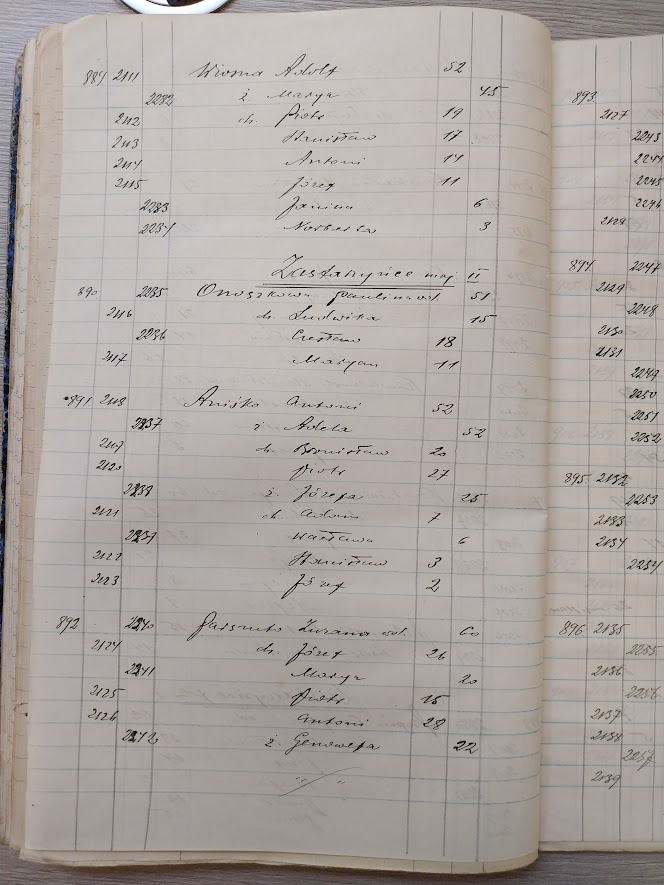 889 2111 Wiosna Adolf 52
2232 ż Marya 45
2112 dz. Piotr 19
2113 Stanisław 17
2114 Antoni 14
2115 Józef 11
2233 Janina 6
2234 Norberta 3
Zastaryńce maj. II
890 2235 Onoszkowa Paulina wd. 51
2116 dz. Ludwika 15
2236 Czesław 18
2117 Maryan 11
891 2118 Aniśko Antoni 52
2237 ż Adela 52
2119 dz. Bronisław 20
2120 Piotr 27
2238 ż. Józefa 25
2121 dz. Adam 7
2239 Wacława 6
2122 Stanisław 3
2123 Józef 2
892 2240 Zuzana wd. 60
2124 dz. Józef 26
2241 Marya 20
2125 Piotr 15
2126 Antoni 28
2242 ż. Genowefa 22
893
2127
2243
2244
2245
2246
2128
894 2247
2129
2248
2130
2131
2249
2250
2251
2252
895 2132
2253
2133
2134
2254
896 2135
2255
2136
2256
2137
2138
2257
2139